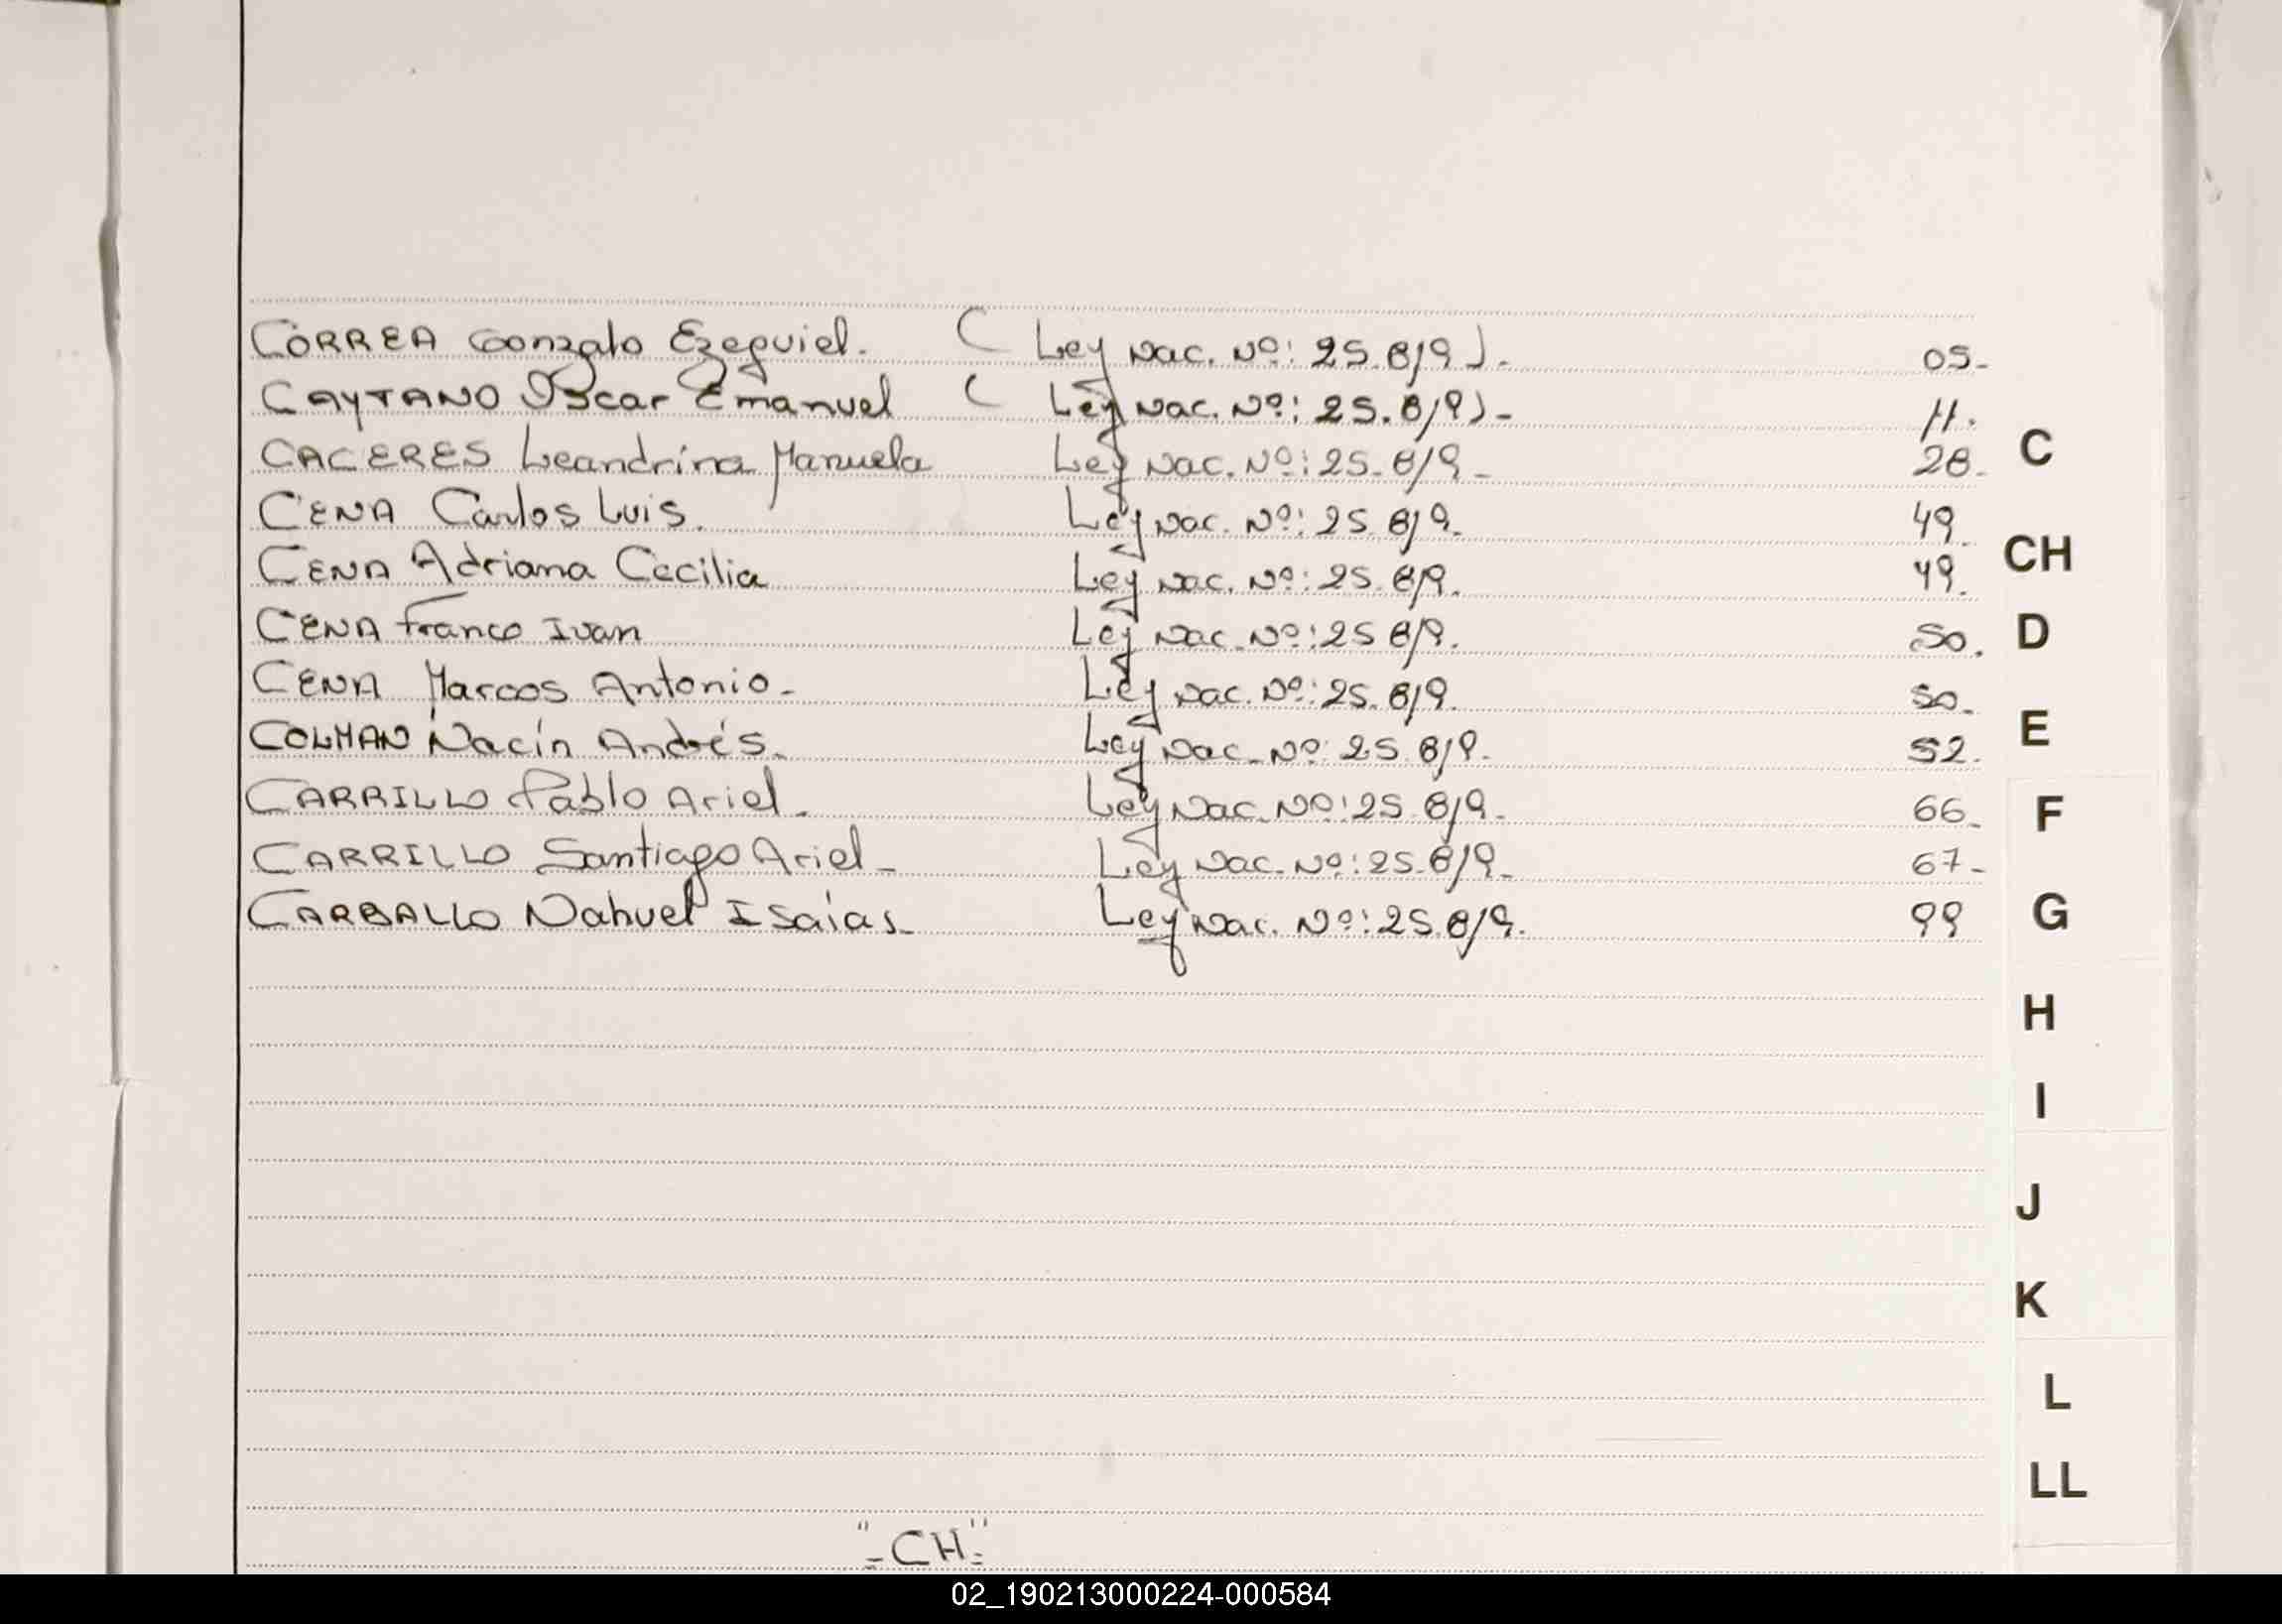 CORREA Gonzalo Ezequiel. ( Ley Nac. Nº: 25.819). 05-
CAYTANO Oscar Emanuel ( Ley Nac. Nº: 25.819)- 11.
CACERES Leandrina Manuela Ley Nac. Nº: 25.819- 28-
CENA Carlos Luis. Ley Nac. Nº: 25.819. 49.
CENA Adriana Cecilia Ley Nac. Nº: 25.819. 49.
CENA Franco Ivan Ley Nac. Nº: 25 819. 50.
CENA Marcos Antonio- Ley Nac. Nº: 25.819. 50.
COLMAN Nacín Andrés- Ley Nac. Nº: 25.819. 52.
CARRILLO Pablo Ariel- Ley Nac. Nº: 25.819. 66-
CARRILLO Santiago Ariel- Ley Nac. Nº: 25.819- 67-
CARBALLO Nahuel Isaías- Ley Nac. Nº: 25.819. 99
C
CH
D
E
F
G
H
I
J
K
L
LL
"=CH="
02_190213000224-000584